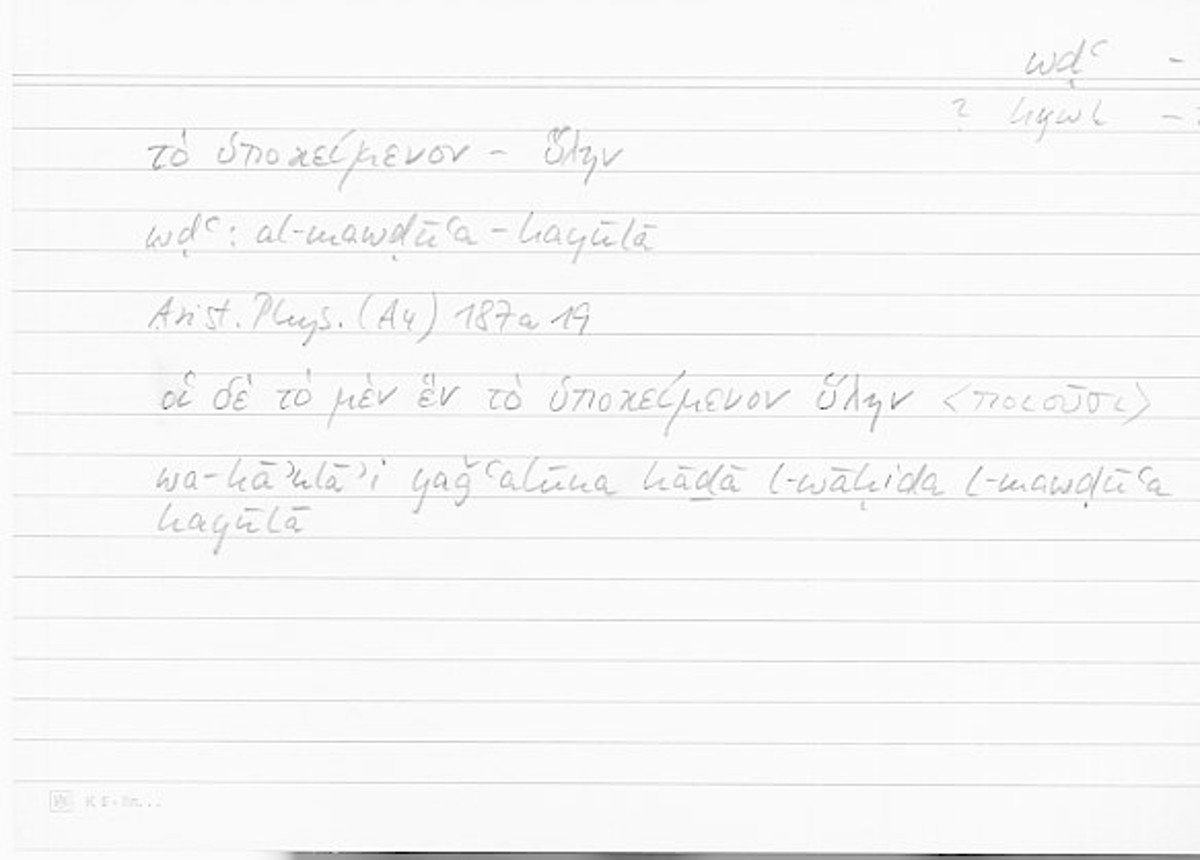 wḍʿ -
? hywl -
τὸ ὑποκείμενον - ὕλην
wḍʿ: al-mawḍūʿa - hayūlā
Arist. Phys. (A4) 187a 19
οἳ δὲ τὸ μὲν ἓν τὸ ὑποκείμενον ὕλην <ποιοῦσι>
wa-hāʾulāʾi yaǧʿalūna hāḏā l-wāḥida l-mawḍūʿa
hayūlā